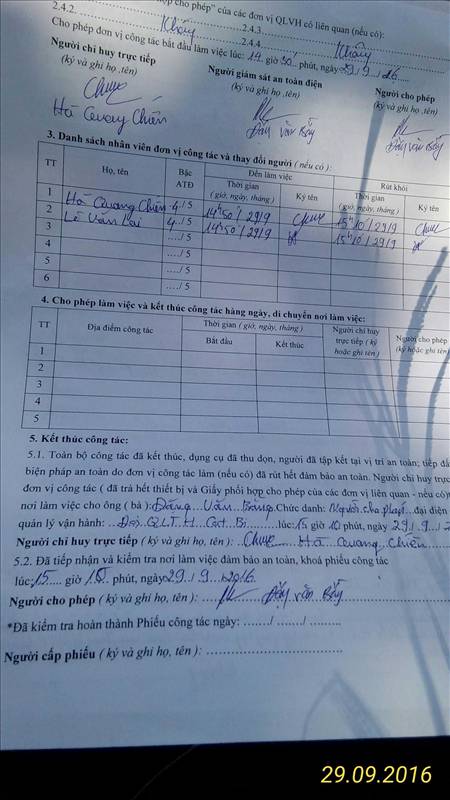 cho phép" của các đơn vị QLVH có liên quan (nếu có):
2.4.2. Không 2.4.3.
2.4.4. Không
Cho phép đơn vị công tác bắt đầu làm việc lúc: 14 giờ 50 phút, ngày 29/9/2016
Người chỉ huy trực tiếp Người giám sát an toàn điện Người cho phép
(ký và ghi họ ,tên) (ký và ghi họ ,tên) (ký và ghi họ ,tên)
Hà Quang Chiến
3. Danh sách nhân viên đơn vị công tác và thay đổi người ( nếu có ):
TT Họ, tên Bậc ATĐ Đến làm việc Rút khỏi
Thời gian (giờ, ngày, tháng) Ký tên Thời gian (giờ, ngày, tháng) Ký tên
1 Hà Quang Chiến 4/5 14h50/29/9 15h10/29/9
2 Lê Văn 4/5 14h50/29/9 15h10/29/9
3 ..../ 5
4 ..../ 5
5 ..../ 5
6 ..../ 5
4. Cho phép làm việc và kết thúc công tác hàng ngày, di chuyển nơi làm việc:
TT Địa điểm công tác Thời gian ( giờ, ngày, tháng ) Người chỉ huy trực tiếp ( ký hoặc ghi tên ) Người cho phép (ký hoặc ghi tên)
Bắt đầu Kết thúc
1
2
3
4
5
5. Kết thúc công tác:
5.1. Toàn bộ công tác đã kết thúc, dụng cụ đã thu dọn, người đã tập kết tại vị trí an toàn; tiếp đất
biện pháp an toàn do đơn vị công tác làm (nếu có) đã rút hết đảm bảo an toàn. Người chỉ huy trực
đơn vị công tác ( đã trả hết thiết bị và Giấy phối hợp cho phép của các đơn vị liên quan - nếu có)
nơi làm việc cho ông ( bà ): Văn Chức danh: Người cho phép đại diện
quản lý vận hành: Đội QLTH Cát Bi lúc: 15 giờ 10 phút, ngày 29/9/
Người chỉ huy trực tiếp ( ký và ghi họ, tên ): Hà Quang Chiến
5.2. Đã tiếp nhận và kiểm tra nơi làm việc đảm bảo an toàn, khoá phiếu công tác
lúc: 15 giờ 15 phút, ngày 29/9/2016
Người cho phép ( ký và ghi họ, tên ):
*Đã kiểm tra hoàn thành Phiếu công tác ngày: ......./......./..........
Người cấp phiếu ( ký và ghi họ, tên ): ...................................
29.09.2016